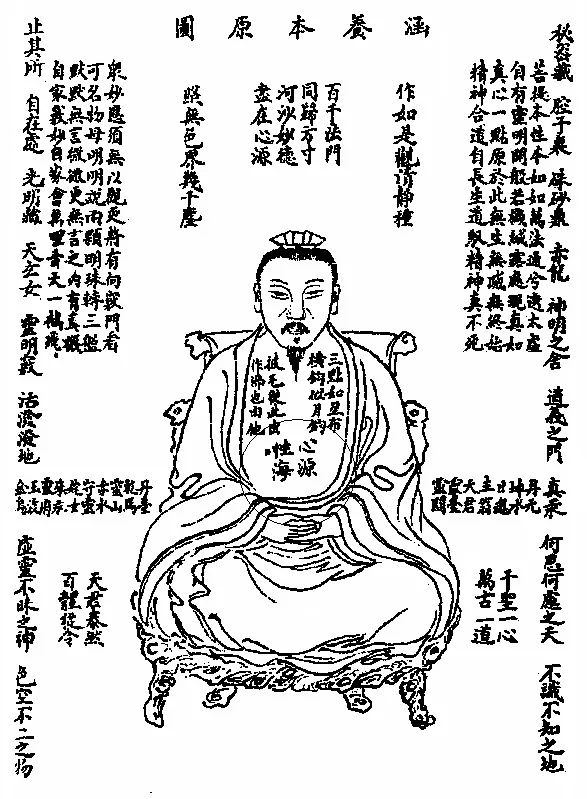 涵養本原圖
秘密藏 腔子裏 硃砂鼎 赤龍 神明之舍 道義之門 真汞 何思何慮之天 不識不知之地
菩提本性本如如萬法通兮太虛
自有靈明開般若機緘露處現真如
真心一點原於此無生無滅無終始
精神合道自長生道馭精神真不死
作如是觀清靜種
百千法門
同歸方寸
河沙妙德
盡在心源
照無色界幾千塵
眾妙應須無以觀更將有向竅門看
可名物母明明說兩顆明珠轉三盤
默默無言微微更無言之內有真
自家義妙自家會萬里青天一
止其所 自在處 光明藏 天玄女 靈明竅 活潑潑地 虛靈不昧之神 色空不二之物
三點如星布
橫鉤似月鉤
披毛從此出
作佛也由他
心源
性海
丹元
坤水
日魂
主翁
天君
靈臺
靈關
丹臺
乾馬
靈山
赤水
守靈
姹女
靈月
玉液
金烏
千聖一心
萬古一道
天君泰然
百體從令